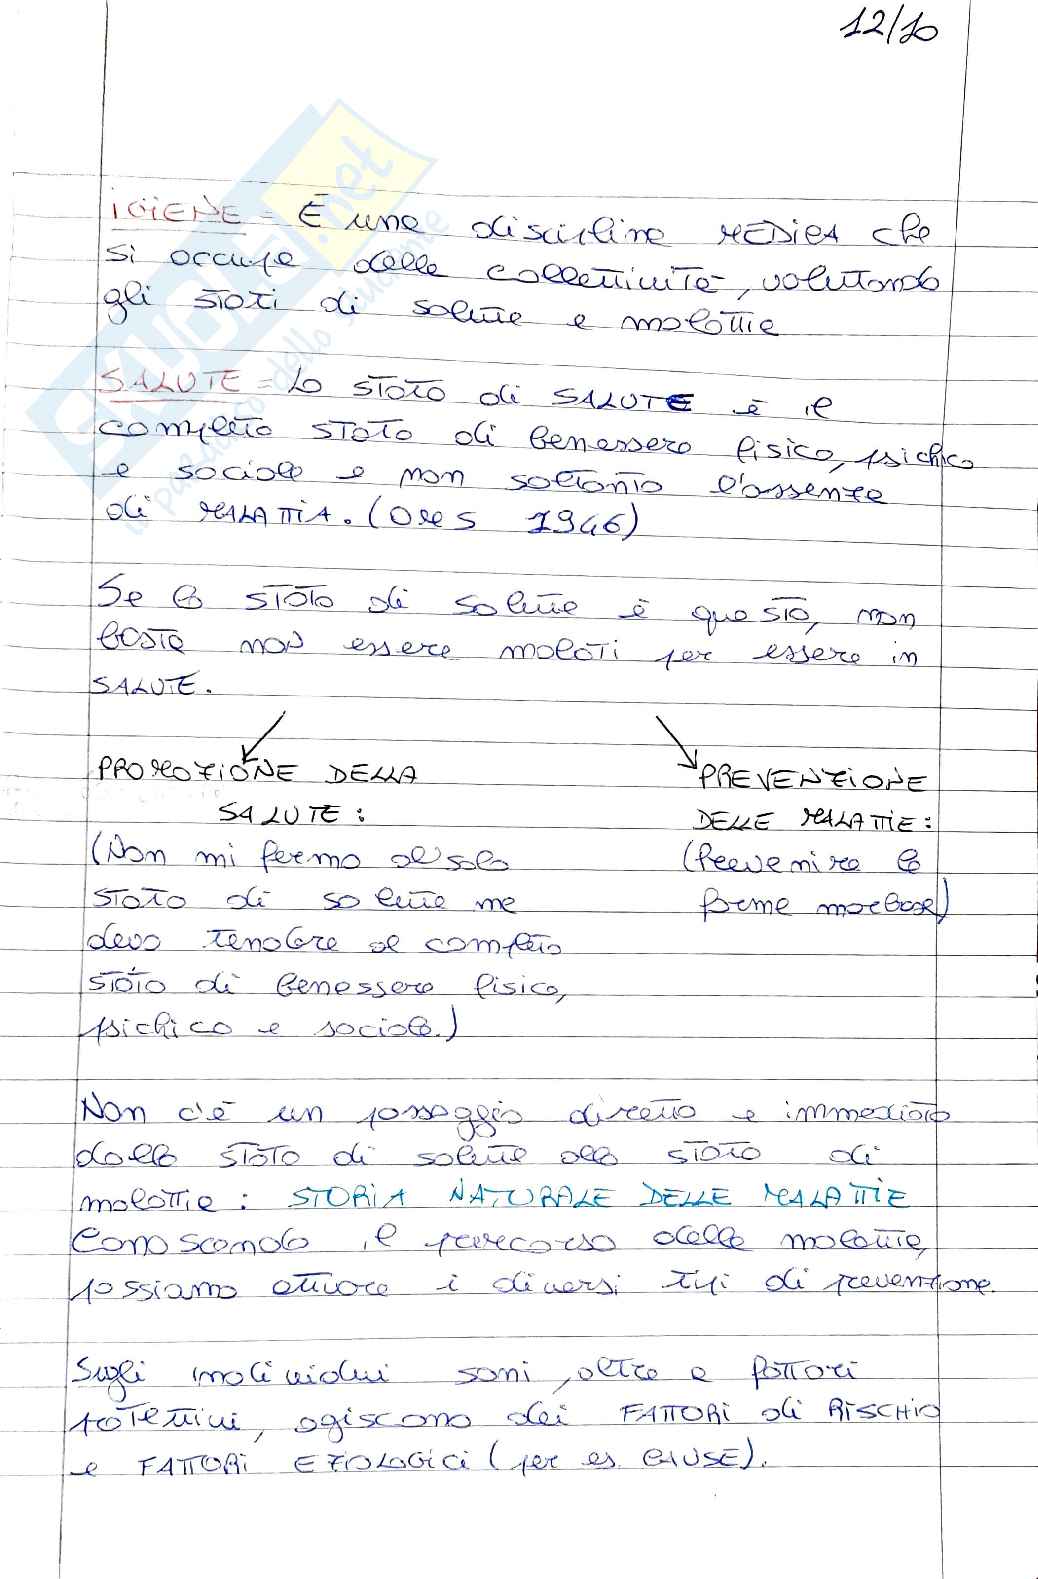 12/10
IGIENE = È una disciplina MEDICA che
si occupa della collettività, valutando
gli stati di salute e malattie
SALUTE = Lo stato di SALUTE è il
completo stato di benessere fisico, psichico
e sociale e non soltanto l'assenza
di MALATTIA. (OMS 1946)
Se lo stato di salute è questo, non
basta non essere malati per essere in
SALUTE.
PROMOZIONE DELLA
SALUTE:
(Non mi fermo al solo
stato di salute ma
devo tendere al completo
stato di benessere fisico,
psichico e sociale.)
PREVENZIONE
DELLE MALATTIE:
(Prevenire le
forme morbose)
Non c'è un passaggio diretto e immediato
dallo stato di salute allo stato di
malattia: STORIA NATURALE DELLE MALATTIE
Conoscendo il percorso delle malattie,
possiamo attuare i diversi tipi di prevenzione.
Sugli individui sani, oltre a fattori
protettivi, agiscono dei FATTORI di RISCHIO
e FATTORI EZIOLOGICI (per es. CAUSE).
SKUOLA.net
il paradiso dello studente